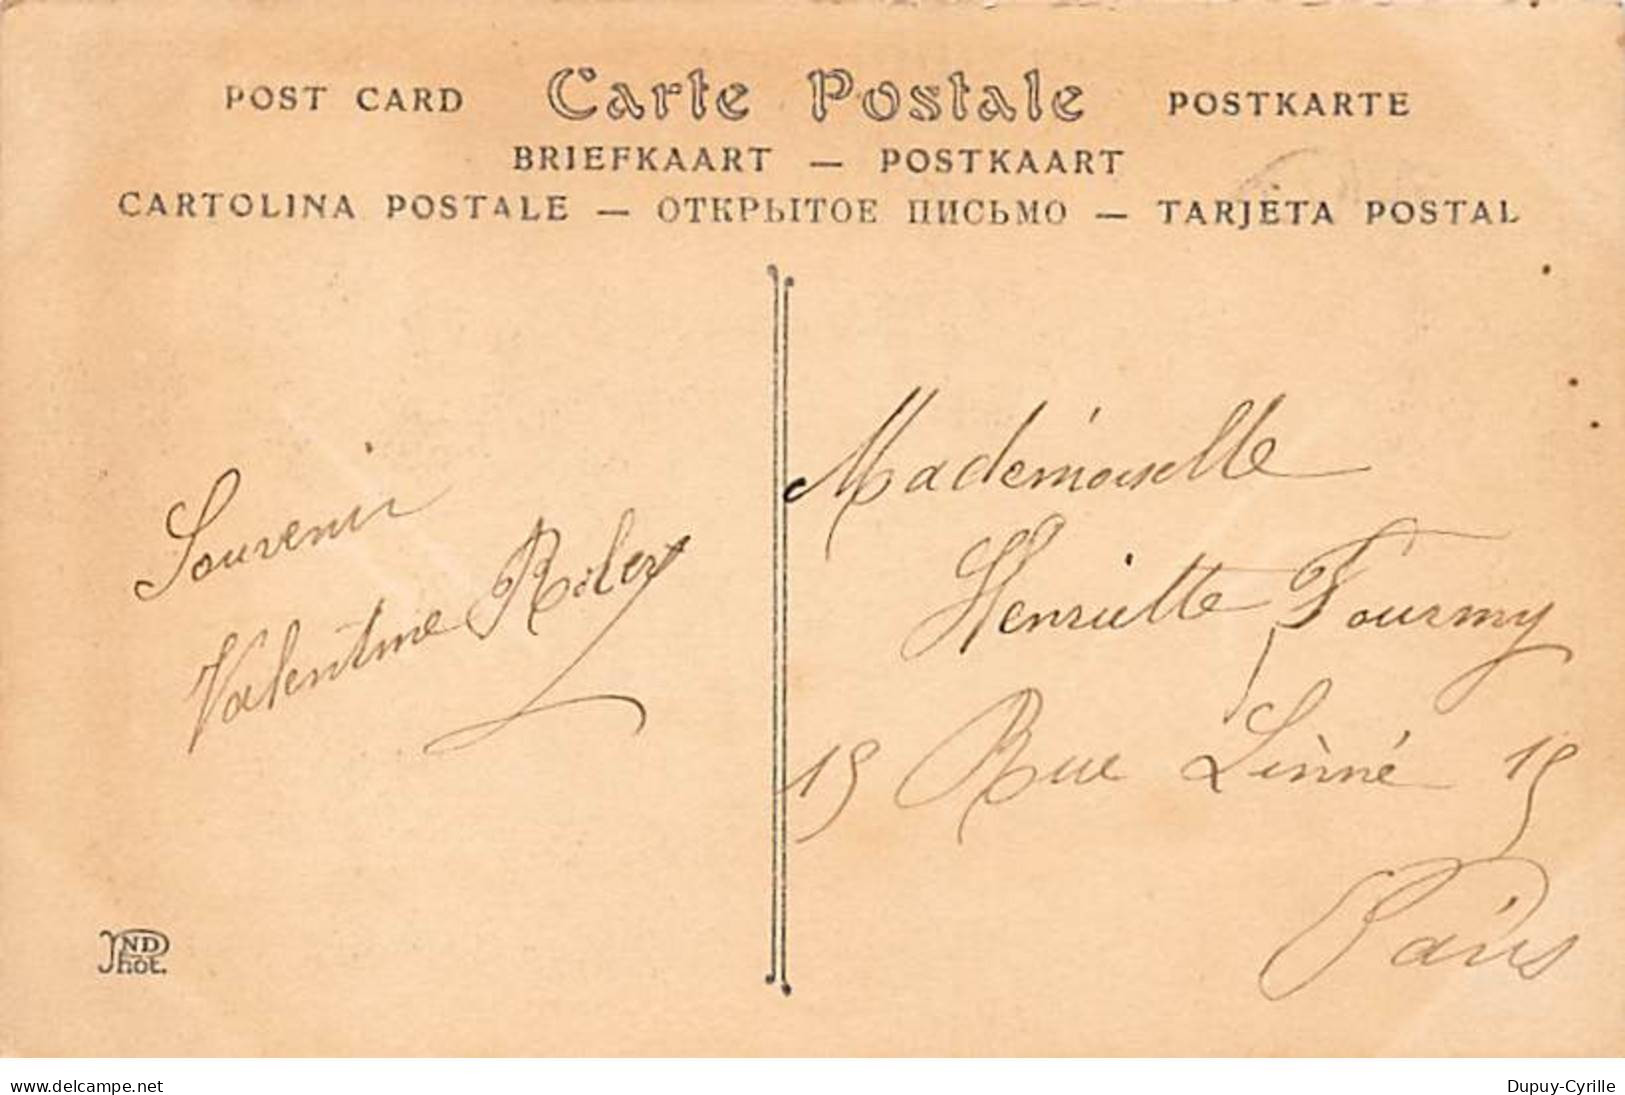 POST CARD Carte Postale POSTKARTE
BRIEFKAART — POSTKAART
CARTOLINA POSTALE — ОТКРЫТОЕ ПИСЬМО — TARJETA POSTAL
Souvenir
Valentine
Mademoiselle
Henriette Fourmy
15 Rue Linné 15
Paris
ND Phot.
www.delcampe.net
Dupuy-Cyrille